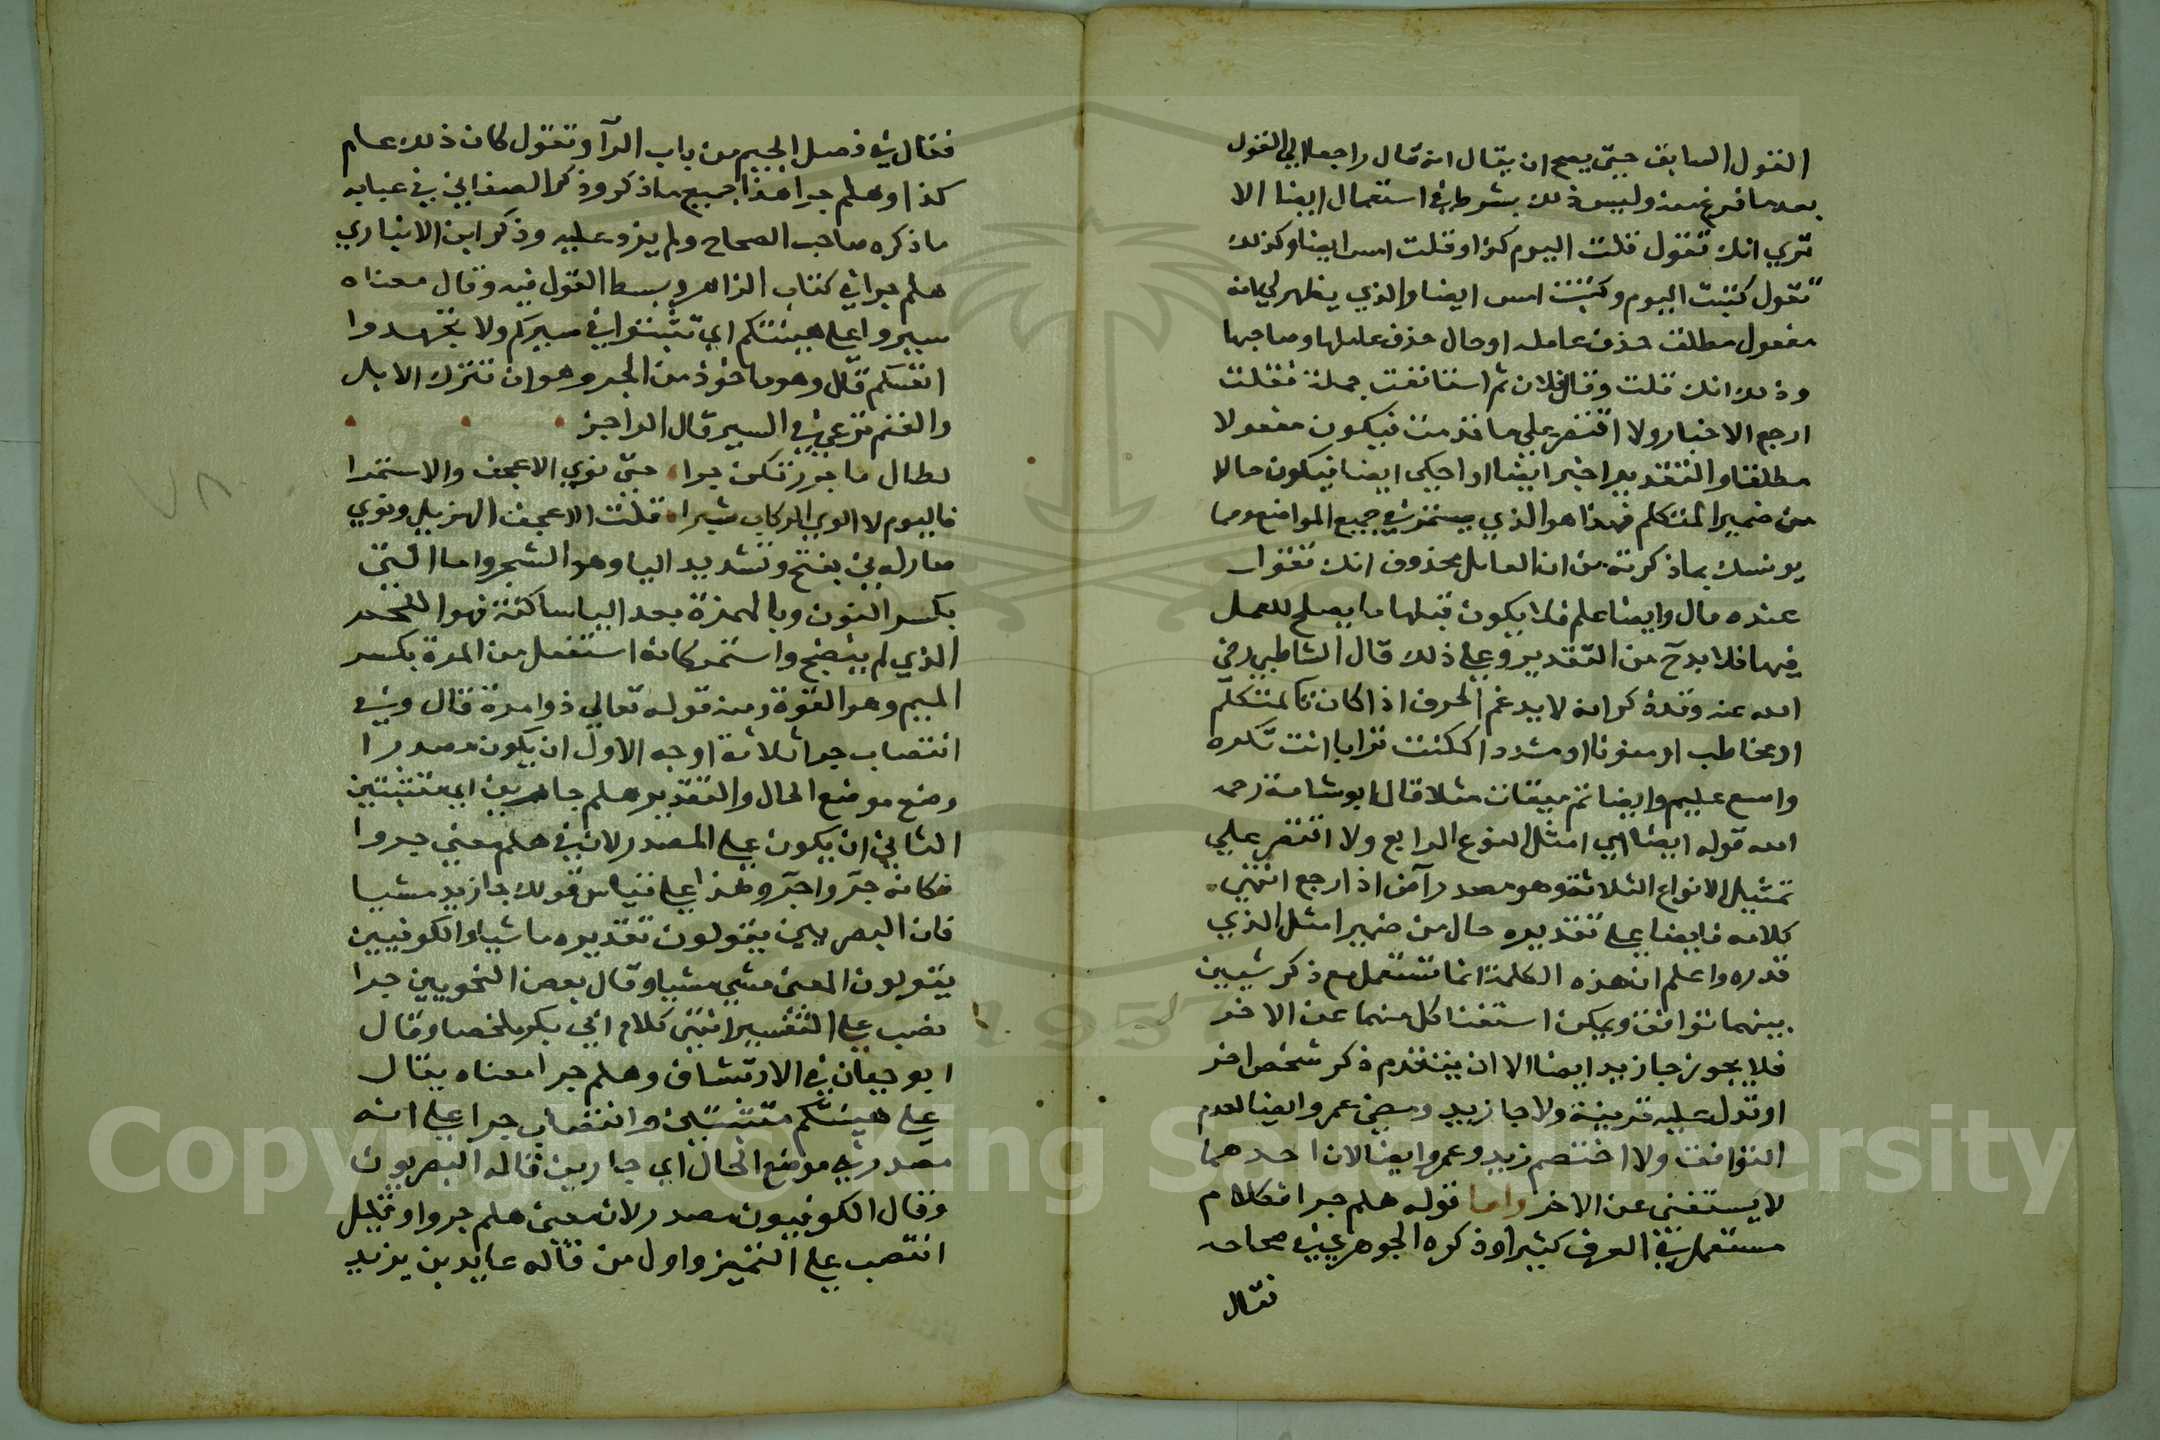 القول السابق حتى يصح ان يقال انه قال راجعا الي القول
بعد ما فرغ منه وليس ذلك بشرط في استعمال ايضا الا
تري انك تقول قلت اليوم كذا وقلت امس ايضا وكذلك
تقول كتبت اليوم وكتبت امس ايضا والذي يظهر لي انه
مفعول مطلق حذف عامله او حال حذف عاملها وصاحبها
وذلك انك قلت وقال فلان ثم استانفت جملة فقلت
ارجع الاخبار ولا اقتصر علي ما قدمت فيكون مفعولا
مطلقا والتقدير اخبر ايضا او احكي ايضا فيكون حالا
من ضمير المتكلم فهذا هو الذي يستمر في جميع المواضع ومما
يونسك بما ذكرته من ان العامل محذوف انك تقول
عنده مال وايضا علم فلا يكون قبلها ما يصلح للعمل
فيها فلا بد من التقدير وعلي ذلك قال الشاطبي رضي
الله عنه وقد ذكر انه لا يدغم الحرف اذا كان تا لمتكلم
او مخاطب او منونا او مشددا ككنت ترابا انت تكره
واسع عليم وايضا تم ميقات مثلا قال ابو شامة رحمه
الله قوله ايضا اي امثل النوع الرابع ولا اقتصر علي
تمثيل الانواع الثلاثة وهو مصدر آض اذا رجع انتهي
كلامه فايضا علي تقديره حال من ضمير امثل الذي
قدره واعلم ان هذه الكلمة انما تستعمل مع ذكر شيين
بينهما توافق ويمكن استغنا كل منهما عن الاخر
فلا يجوز جا زيد ايضا الا ان يتقدم ذكر شخص اخر
او تدل عليه قرينة ولا جا زيد ومضي عمرو ايضا لعدم
التوافق ولا اختصم زيد وعمرو ايضا لان احدهما
لا يستغني عن الاخر واما قوله هلم جرا فكلام
مستعمل في العرف كثيرا وذكره الجوهري في صحاحه
فقال
فقال في فصل الجيم من باب الرآ وتقول كان ذلك عام
كذا وهلم جرا هذا جميع ما ذكر وذكر الصغاني في عبابه
ما ذكره صاحب الصحاح ولم يزد عليه وذكر ابن الانباري
هلم جرا في كتاب الزاهر وبسط القول فيه وقال معناه
سيروا علي هينتكم اي تثبتوا في سيركم ولا تجهدوا
انفسكم قال وهو ماخوذ من الجر وهو ان تترك الابل
والغنم ترعي في السير قال الراجز
لطال ما جررتكن جرا حتي نوي الاعجف والاستمرا
فاليوم لا الوي الركاب شرا قلت الاعجف الهزيل ونوي
صار له ني بفتح وتشديد اليا وهو الشحم واما الني
بكسر النون وبالهمزة بعد اليا ساكنة فهو اللحم
الذي لم ينضج واستمر كانه استفعل من المرة بكسر
الميم وهو القوة ومنه قوله تعالي ذو مرة قال وفي
انتصاب جرا ثلاثة اوجه الاول ان يكون مصدرا
وضع موضع الحال والتقدير هلم جارين اي متثبتين
الثاني ان يكون علي المصدر لان في هلم معني جروا
فكانه جروا جرا وهذا علي قياس قولك جا زيد مشيا
فان البصريين يقولون تقديره ماشيا والكوفيين
يقولون المعني مشي مشيا وقال بعض النحويين جرا
نصب علي التفسير انتهي كلام ابي بكر ملخصا وقال
ابو حيان في الارتشاف وهلم جرا معناه يقال
علي هينتكم متثبتين وانتصاب جرا علي انه
مصدر في موضع الحال اي جارين قاله البصريون
وقال الكوفيون مصدر لان معني هلم جروا وقيل
انتصب علي التمييز واول من قاله عايد بن يزيد
Copyright © King Saud University
1957